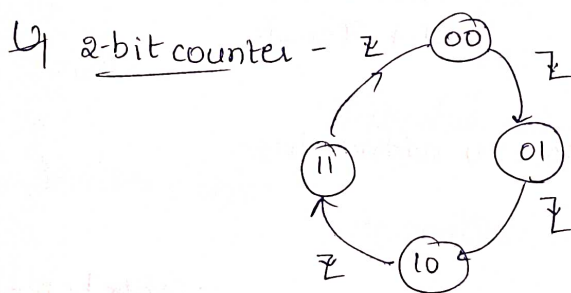 ↳ 2-bit counter - Z 00
Z
11
01
Z
Z 10